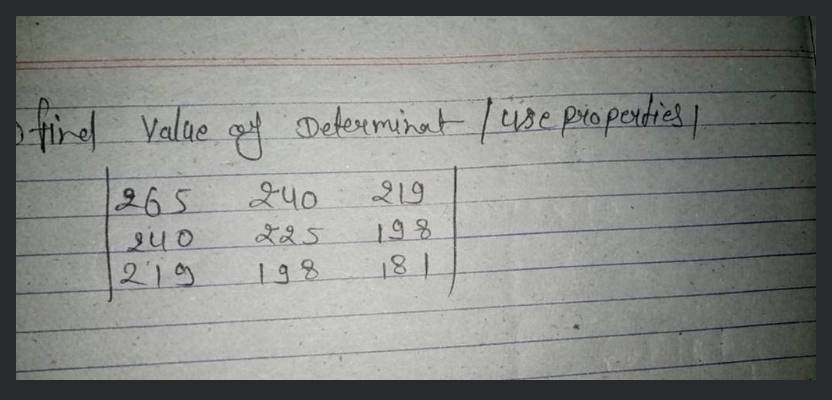 ) find Value of Determinat / use properties /
265 240 219
240 225 198
219 198 181